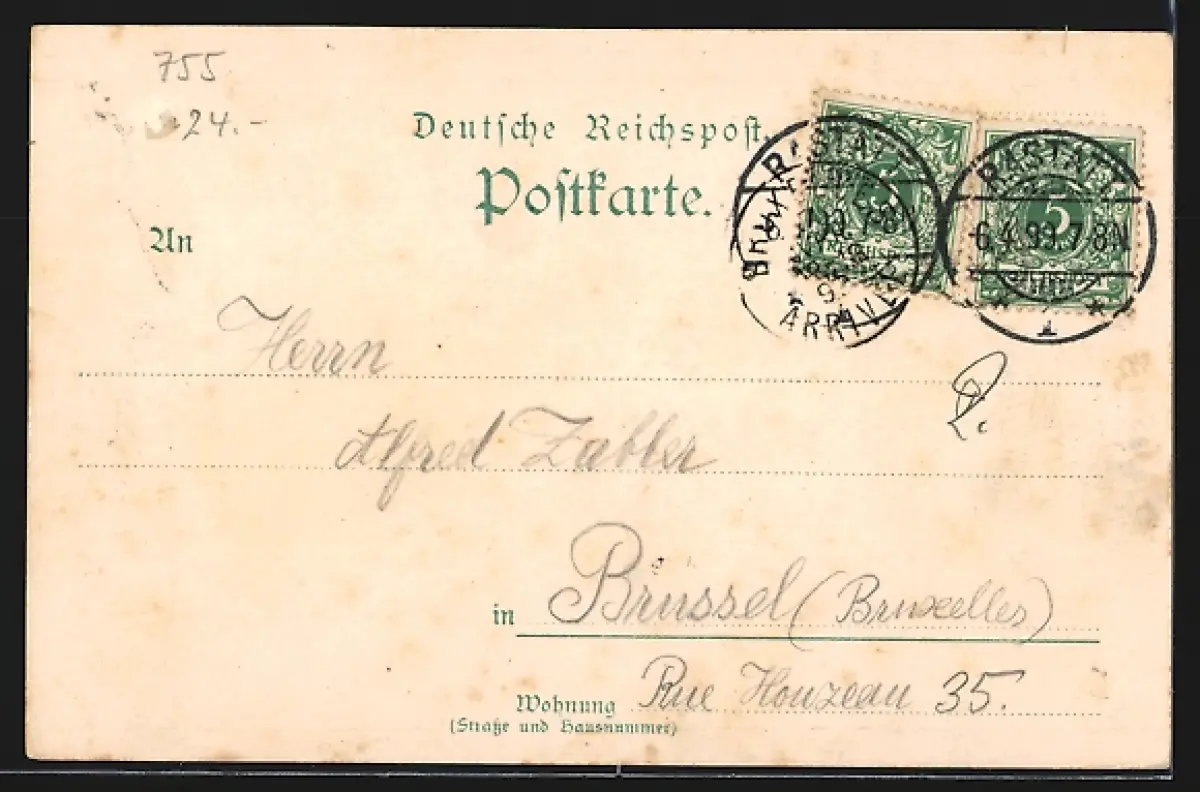 755
24.-
Deutsche Reichspost.
Postkarte.
RASTATT
ARRIVÉE
RASTATT
6.4.99.7-8N
* 1 *
5
An
Herrn
Alfred Zabler
in Brüssel (Bruxelles)
Wohnung Rue Houzeau 35.
(Straße und Hausnummer)